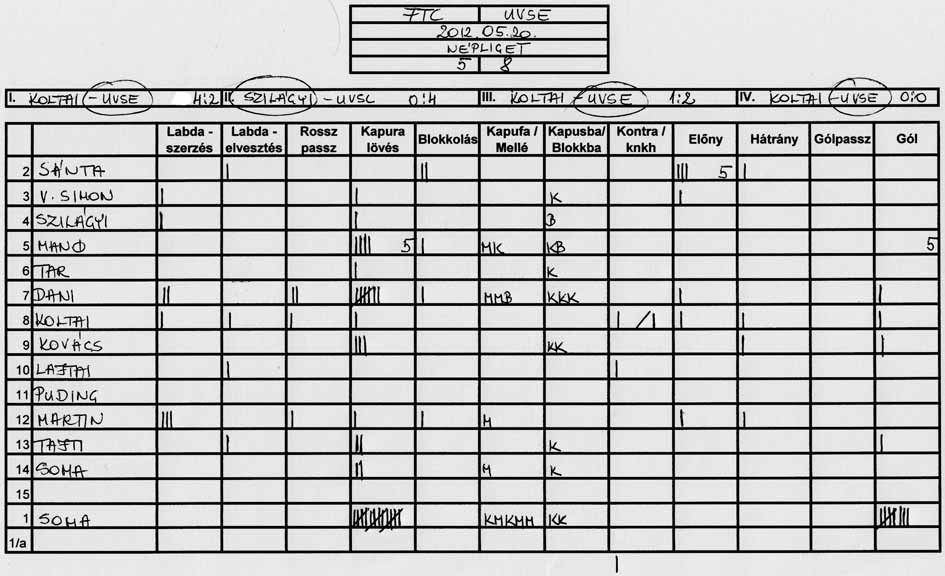 FTC UVSE
2012.05.20.
NÉPLIGET
5 8
I. KOLTAI - UVSE 4:2 II. SZILÁGYI - UVSC 0:4 III. KOLTAI - UVSE 1:2 IV. KOLTAI - UVSE 0:0
Labda - szerzés Labda - elvesztés Rossz passz Kapura lövés Blokkolás Kapufa / Mellé Kapusba/ Blokkba Kontra / knkh Előny Hátrány Gólpassz Gól
2 SÁNTA | || ||| 5 |
3 V. SIMON | | K |
4 SZILÁGYI | | B
5 MANO |||| 5 | MK KB 5
6 TAR | K
7 DANI || || | MMB KKK | |
8 KOLTAI | | | | | /| | | |
9 KOVÁCS ||| KK | |
10 LAJTAI | |
11 PUDING
12 MARTIN ||| | | | M | |
13 TAJTI | || K |
14 SOMA || M K
15
1 SOMA KMKMM KK
1/a
|